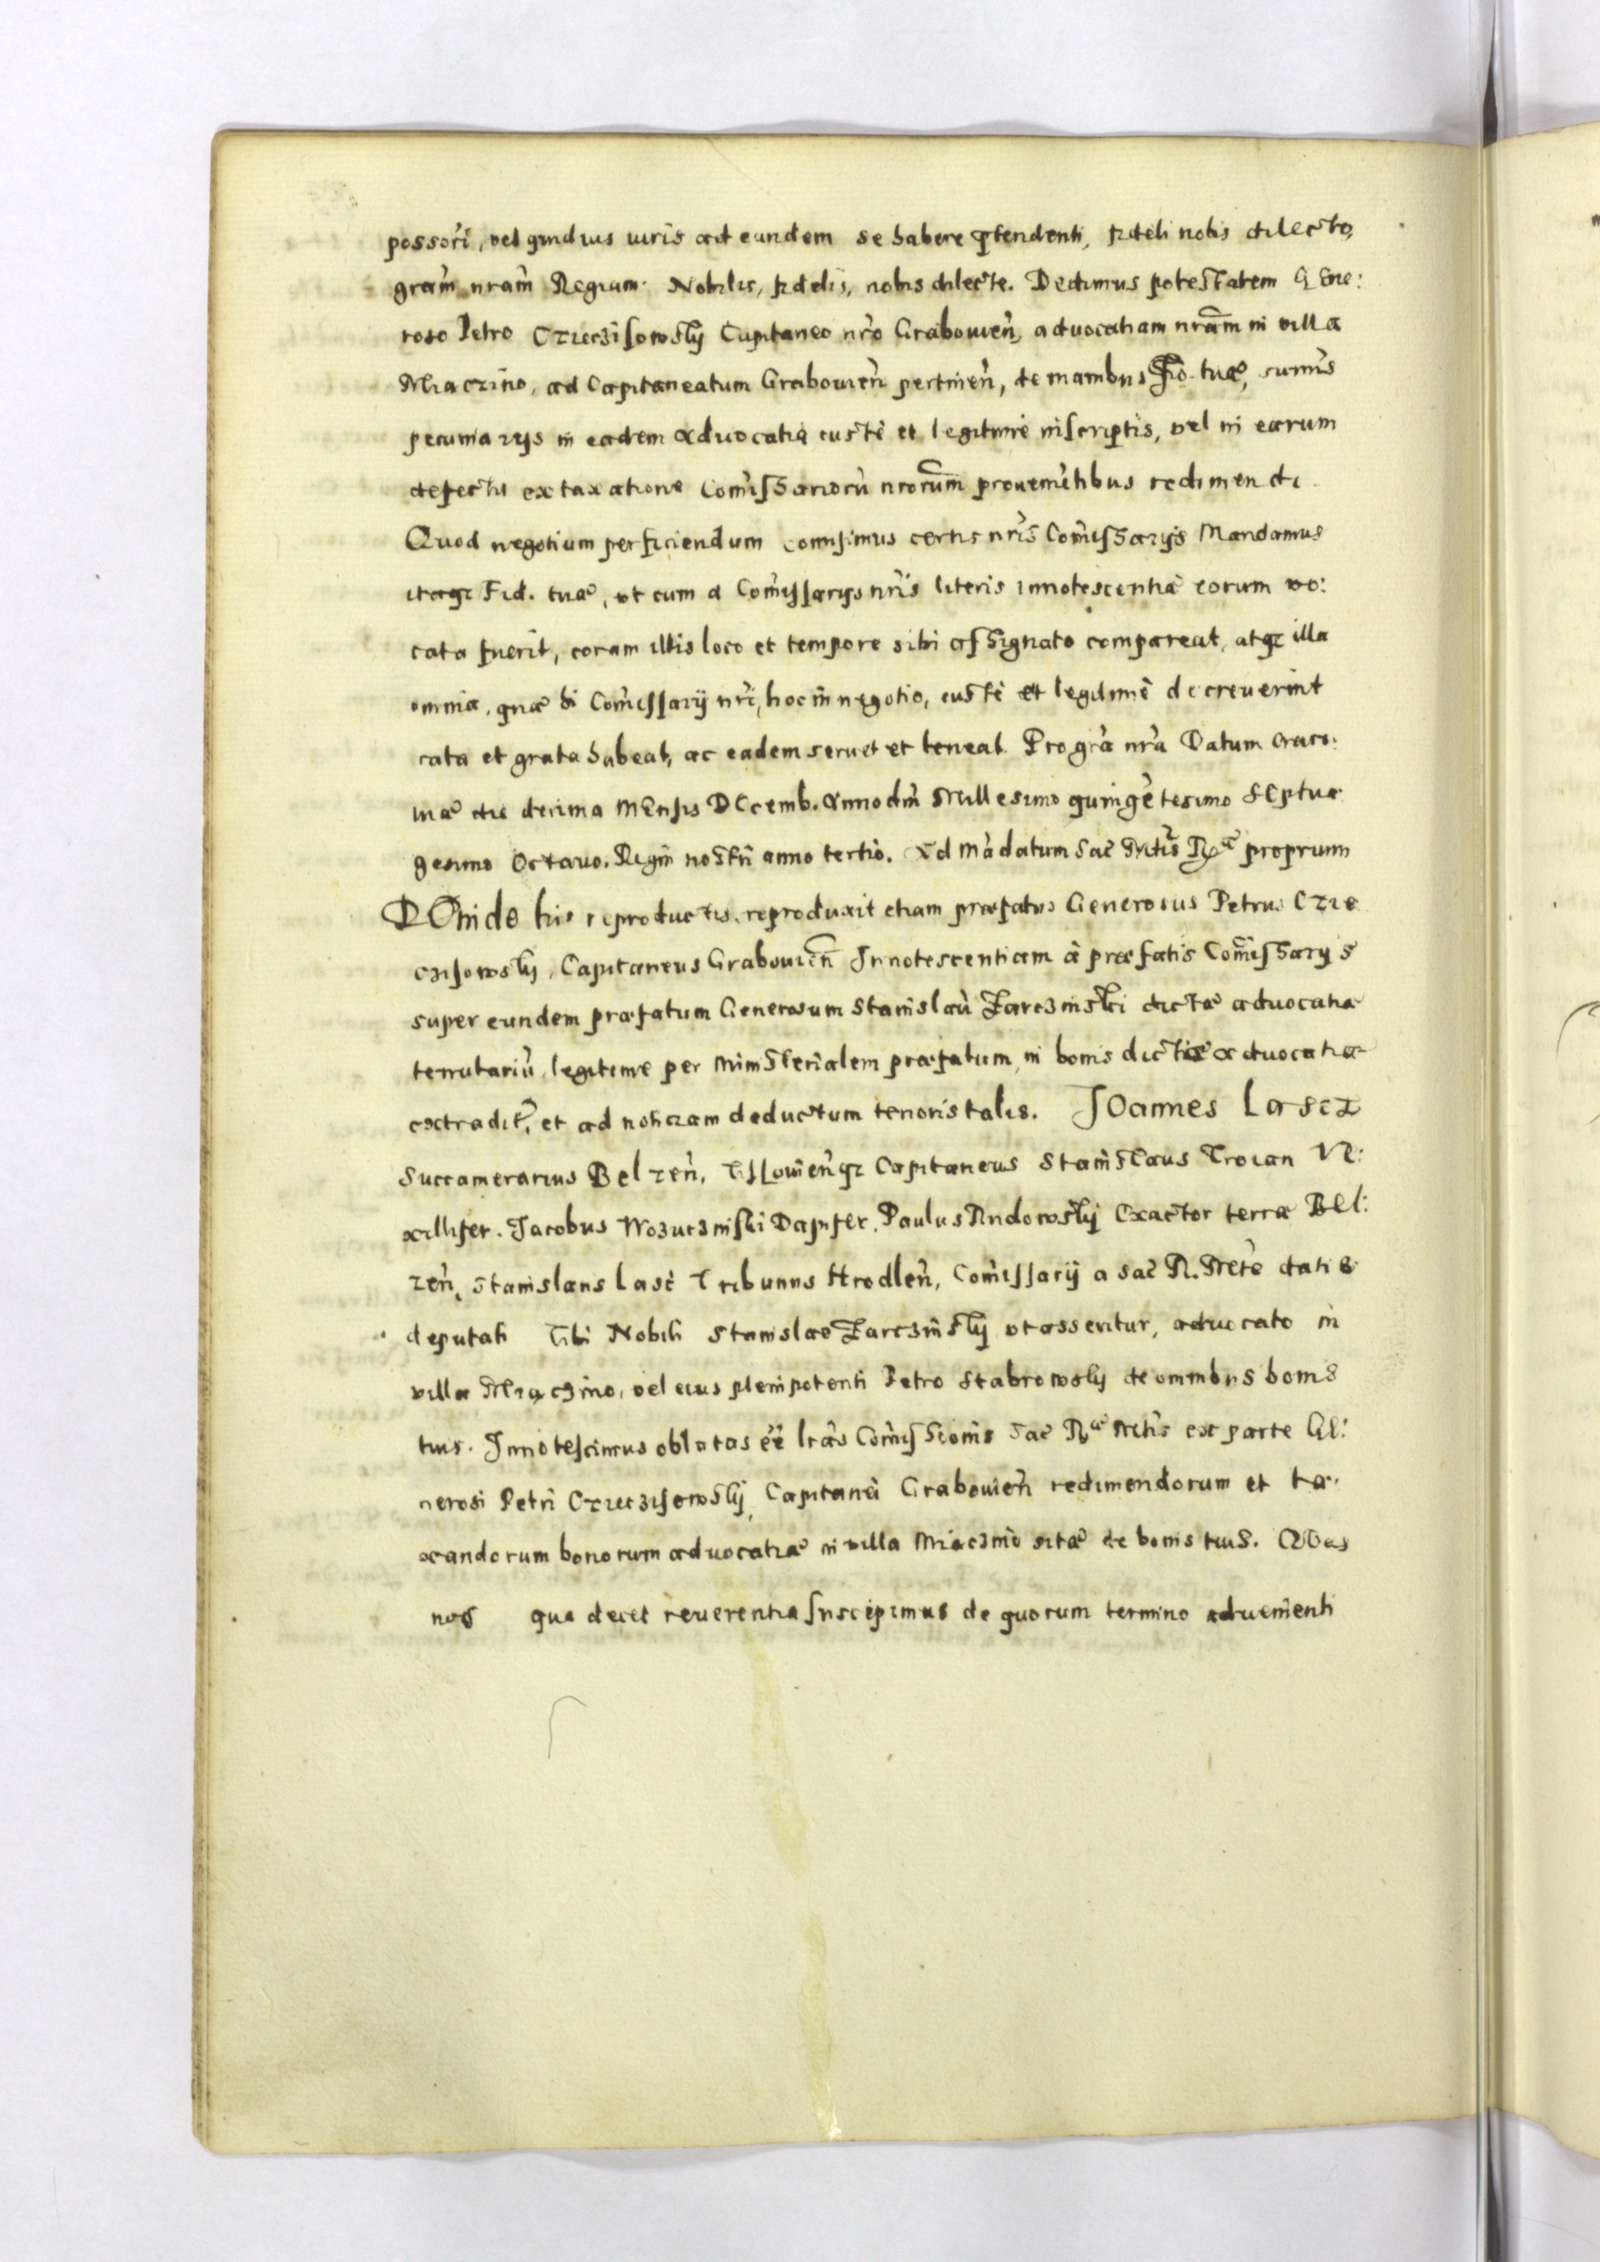 possori, vel quidvis iuris ad eundem se habere ptendenti, fideli nobis dilecto,
gram nram Regiam. Nobilis, fidelis, nobis dilecte. Dedimus potestatem Gene:
roso Petro Czieczisowsky Capitaneo nro Grabowien, advocatiam nram in villa
Miaczino, ad Capitaneatum Grabowien pertinen, de manibus tuae, summis
pecuniarys in eadem advocatia iuste et legitime inscriptis, vel in earum
defectu ex taxatione Comissarioru nrorum provenientibus redimendi.
Quod negotium perficiendum comisimus certis nris Comissarijs Mandamus
itaque Fid. tuae, ut cum a Comissarijs nris literis Innotescentiae eorum vo:
cata fuerit, coram illis loco et tempore sibi assignato compareat, atque illa
omnia, quae hi Comissarij nri, hoc in negotio, iuste et legitime decreverint
rata et grata habeat, ac eadem servet et teneat. Pro gra nra Datum Craco:
viae die decima Mensis Decemb. Anno dni Millesimo quingetesimo Septua
gesimo Octavo. Regni nostri anno tertio. Ad madatum Sac Mtis Rae proprium
DEinde his reproductis, reproduxit etiam praefatus Generosus Petrus Czie
czisowsky, Capitaneus Grabowien Innotescentiam a praefatis Comissarijs
super eundem praefatum Generosum Stanislau Zarczinski dictae advocatiae
tenutariu, legitime per Ministerialem praefatum, in bonis dictae advocatiae
extradit, et ad noticiam deductum tenoris talis. JOannes Lascz
Succamerarius Belzen, Tissowienque Capitaneus Stanislaus Troian Ve:
xillifer. Jacobus Wozuczinski Dapifer. Paulus Rudowsky Exactor terrae Bel:
zen, Stanislaus Lasc Tribunus Hrodlen, Comissarij a Sac R. Mte dati &
deputati Tibi Nobili Stanislao Zarczinsky ut asseritur, advocato in
villa Miaczino, vel eius plenipotenti Petro Stabrowsky de omnibus bonis
tuis. Innotescimus oblatas ee lras Comissionis Sac Rae Mtis ex parte Ge:
nerosi Petri Czieczisowsky, Capitanei Grabowien redimendorum et ta:
xandorum bonorum advocatiae in villa Miaczino sitae de bonis tuis. Quas
nos qua decet reverentia suscepimus de quorum termino advenienti